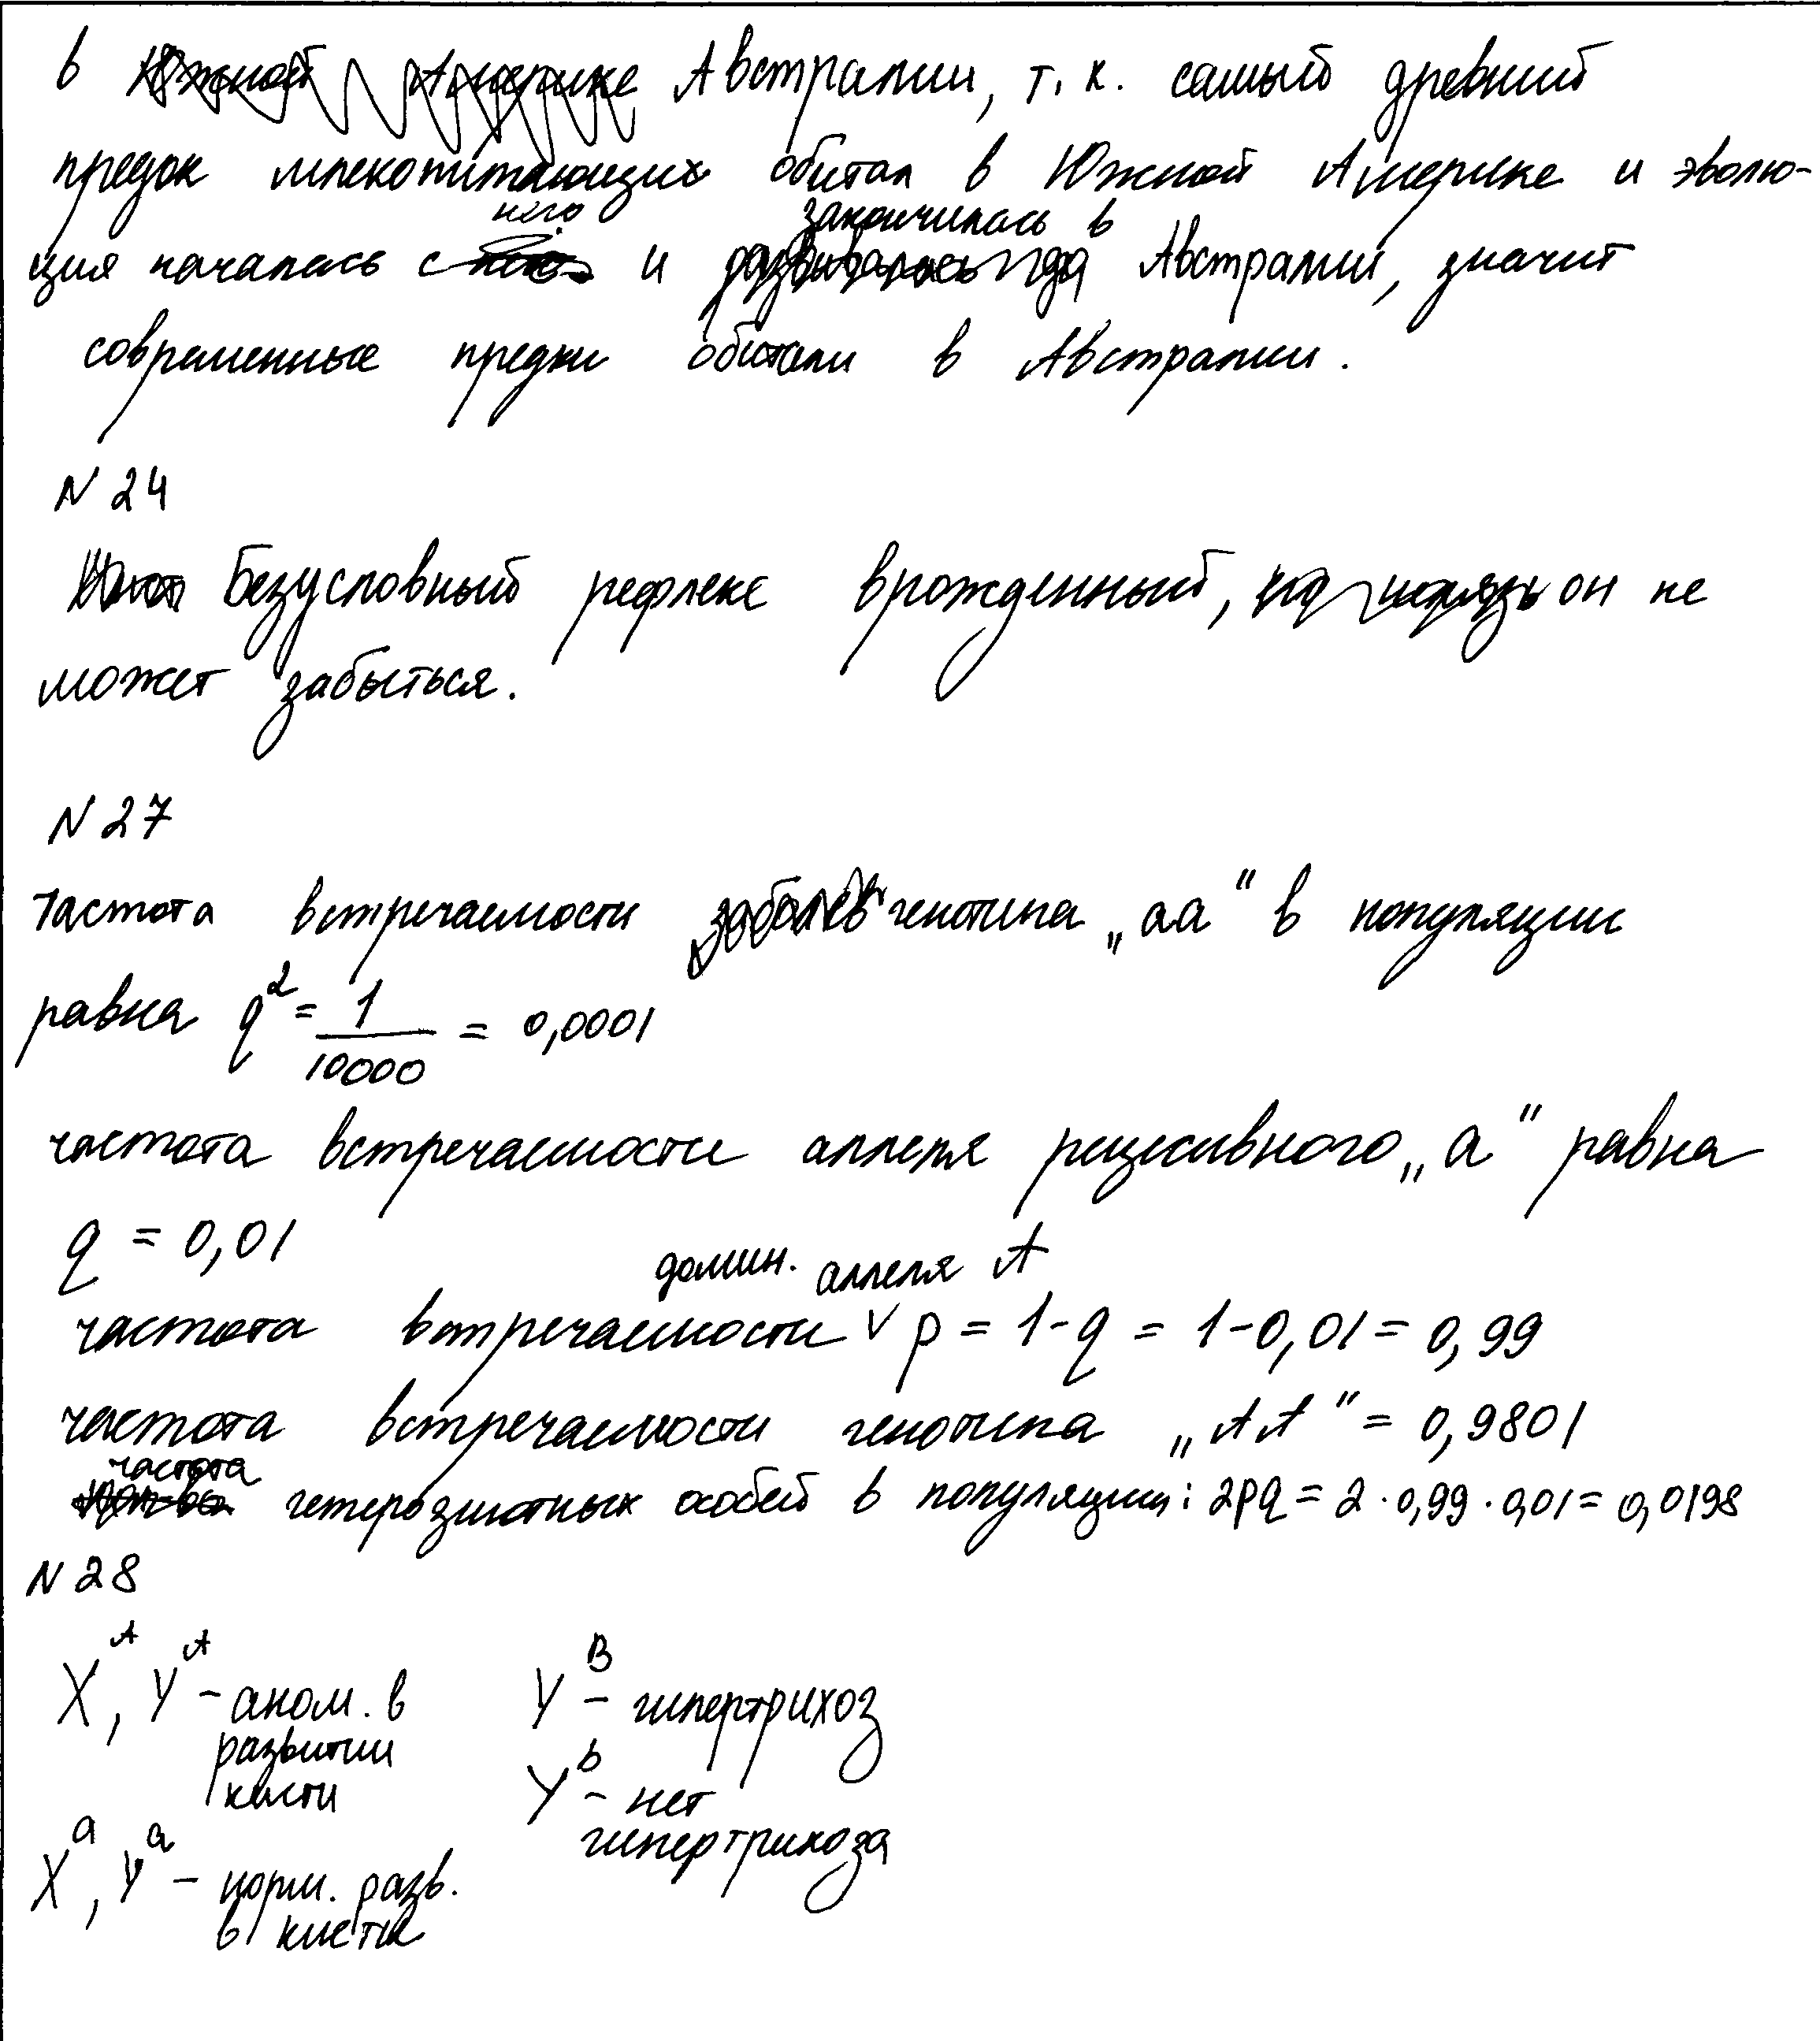 в Южной Америке Австралии, т.к. самый древний
предок млекопитающих обитал в Южной Америке и эволю-
ция началась с него и закончилась в Австралии, значит
современные предки обитали в Австралии.
N 24
Безусловный рефлекс врожденный, он не
может забыться.
N 27
Частота встречаемости заболев генотипа „аа" в популяции
равна q² = 1/10000 = 0,0001
частота встречаемости аллеля рецесивного „а" равна
q = 0,01
домин. аллеля А
частота встречаемости V p = 1-q = 1-0,01 = 0,99
частота встречаемости генотипа „АА" = 0,9801
частота
кол-во гетерозиготных особей в популяции: 2pq = 2·0,99·0,01 = 0,0198
N 28
X^A, Y^A - аном. в Y^B - гипертрихоз
развитии
кисти Y^b - нет
гипертрихоза
X^a, Y^a - норм. разв.
в кисти